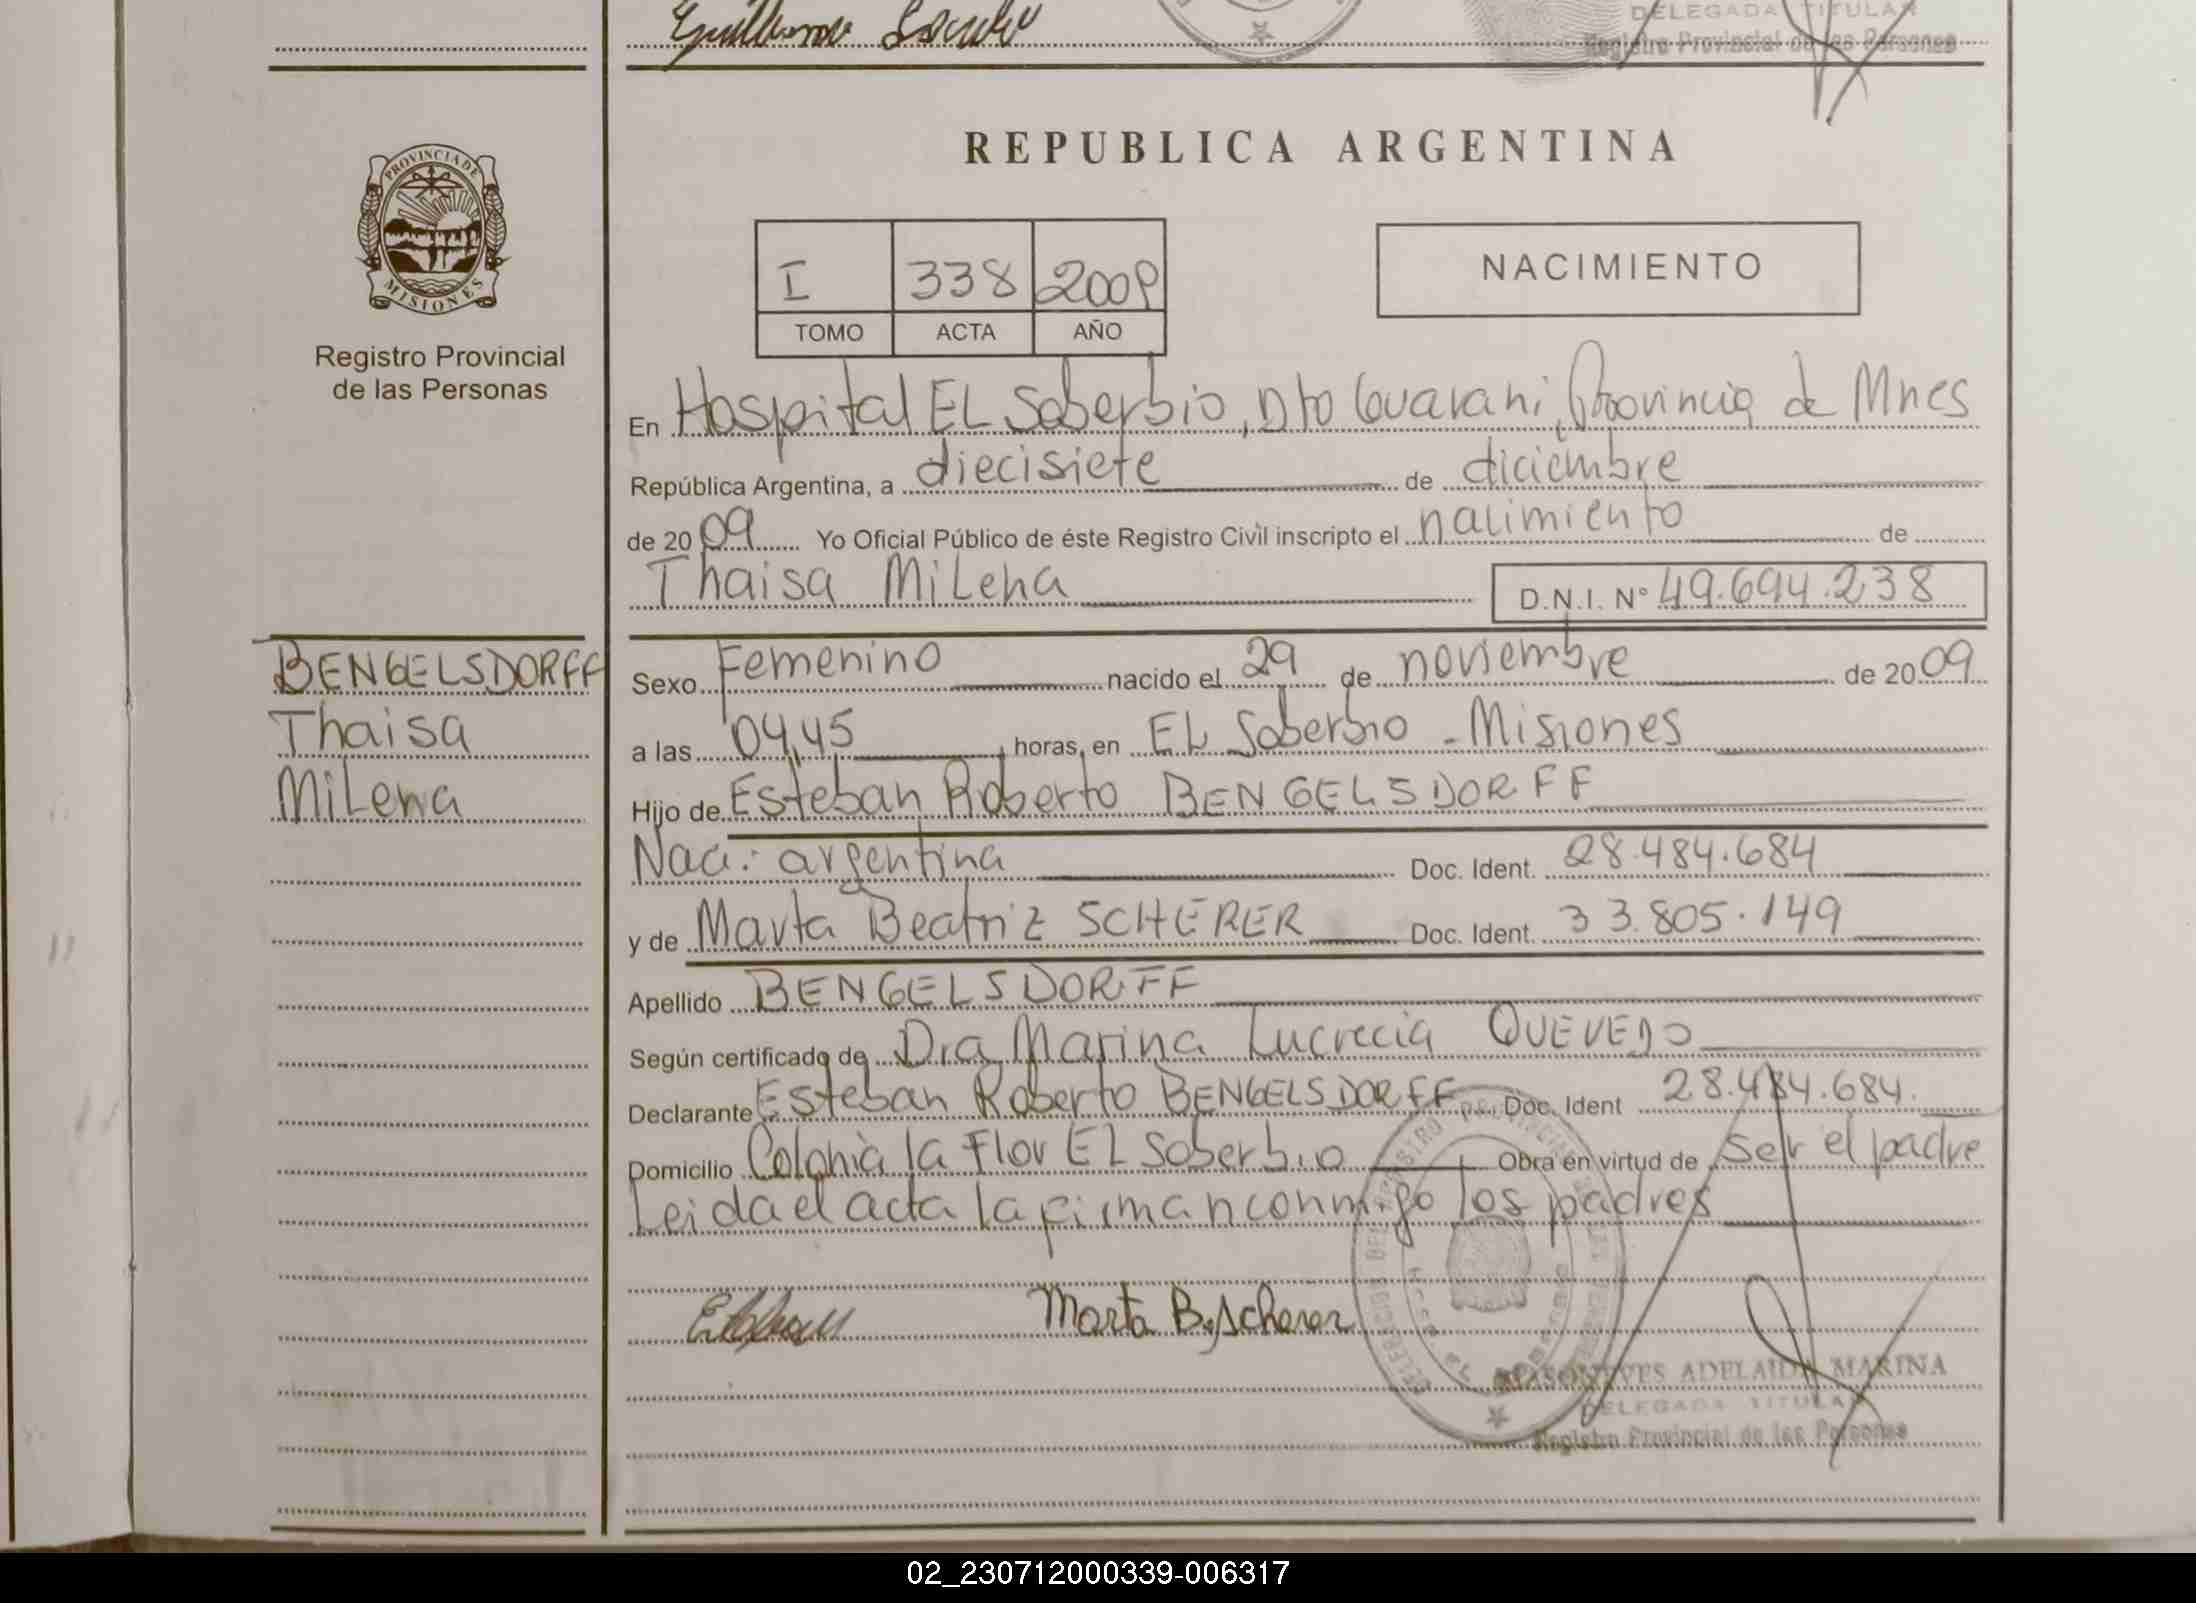 Guillermo
DELEGADA TITULAR
Registro Provincial de las Personas
PROVINCIA DE
MISIONES
Registro Provincial
de las Personas
REPUBLICA ARGENTINA
I 338 2009
TOMO ACTA AÑO
NACIMIENTO
En Hospital EL Soberbio, Dto Guarani, Provincia de Mnes
República Argentina, a diecisiete de diciembre
de 2009 Yo Oficial Público de éste Registro Civil inscripto el nacimiento de
Thaisa Milena D.N.I. Nº 49.694.238
BENGELSDORFF
Thaisa
Milena
Sexo Femenino nacido el 29 de noviembre de 2009
a las 04,45 horas, en EL Soberbio - Misiones
Hijo de Esteban Roberto BENGELSDORFF
Naci: argentina Doc. Ident. 28.484.684
y de Marta Beatriz SCHERER Doc. Ident. 33.805.149
Apellido BENGELSDORFF
Según certificado de Dra Marina Lucrecia QUEVEDO
Declarante Esteban Roberto BENGELSDORFF Doc. Ident 28.484.684.
Domicilio Colonia la Flor EL Soberbio Obra en virtud de ser el padre
Leida el acta la firman conmigo los padres
Marta B. Scherer
ADELAIDA MARINA
DELEGADA TITULAR
Registro Provincial de las Personas
02_230712000339-006317